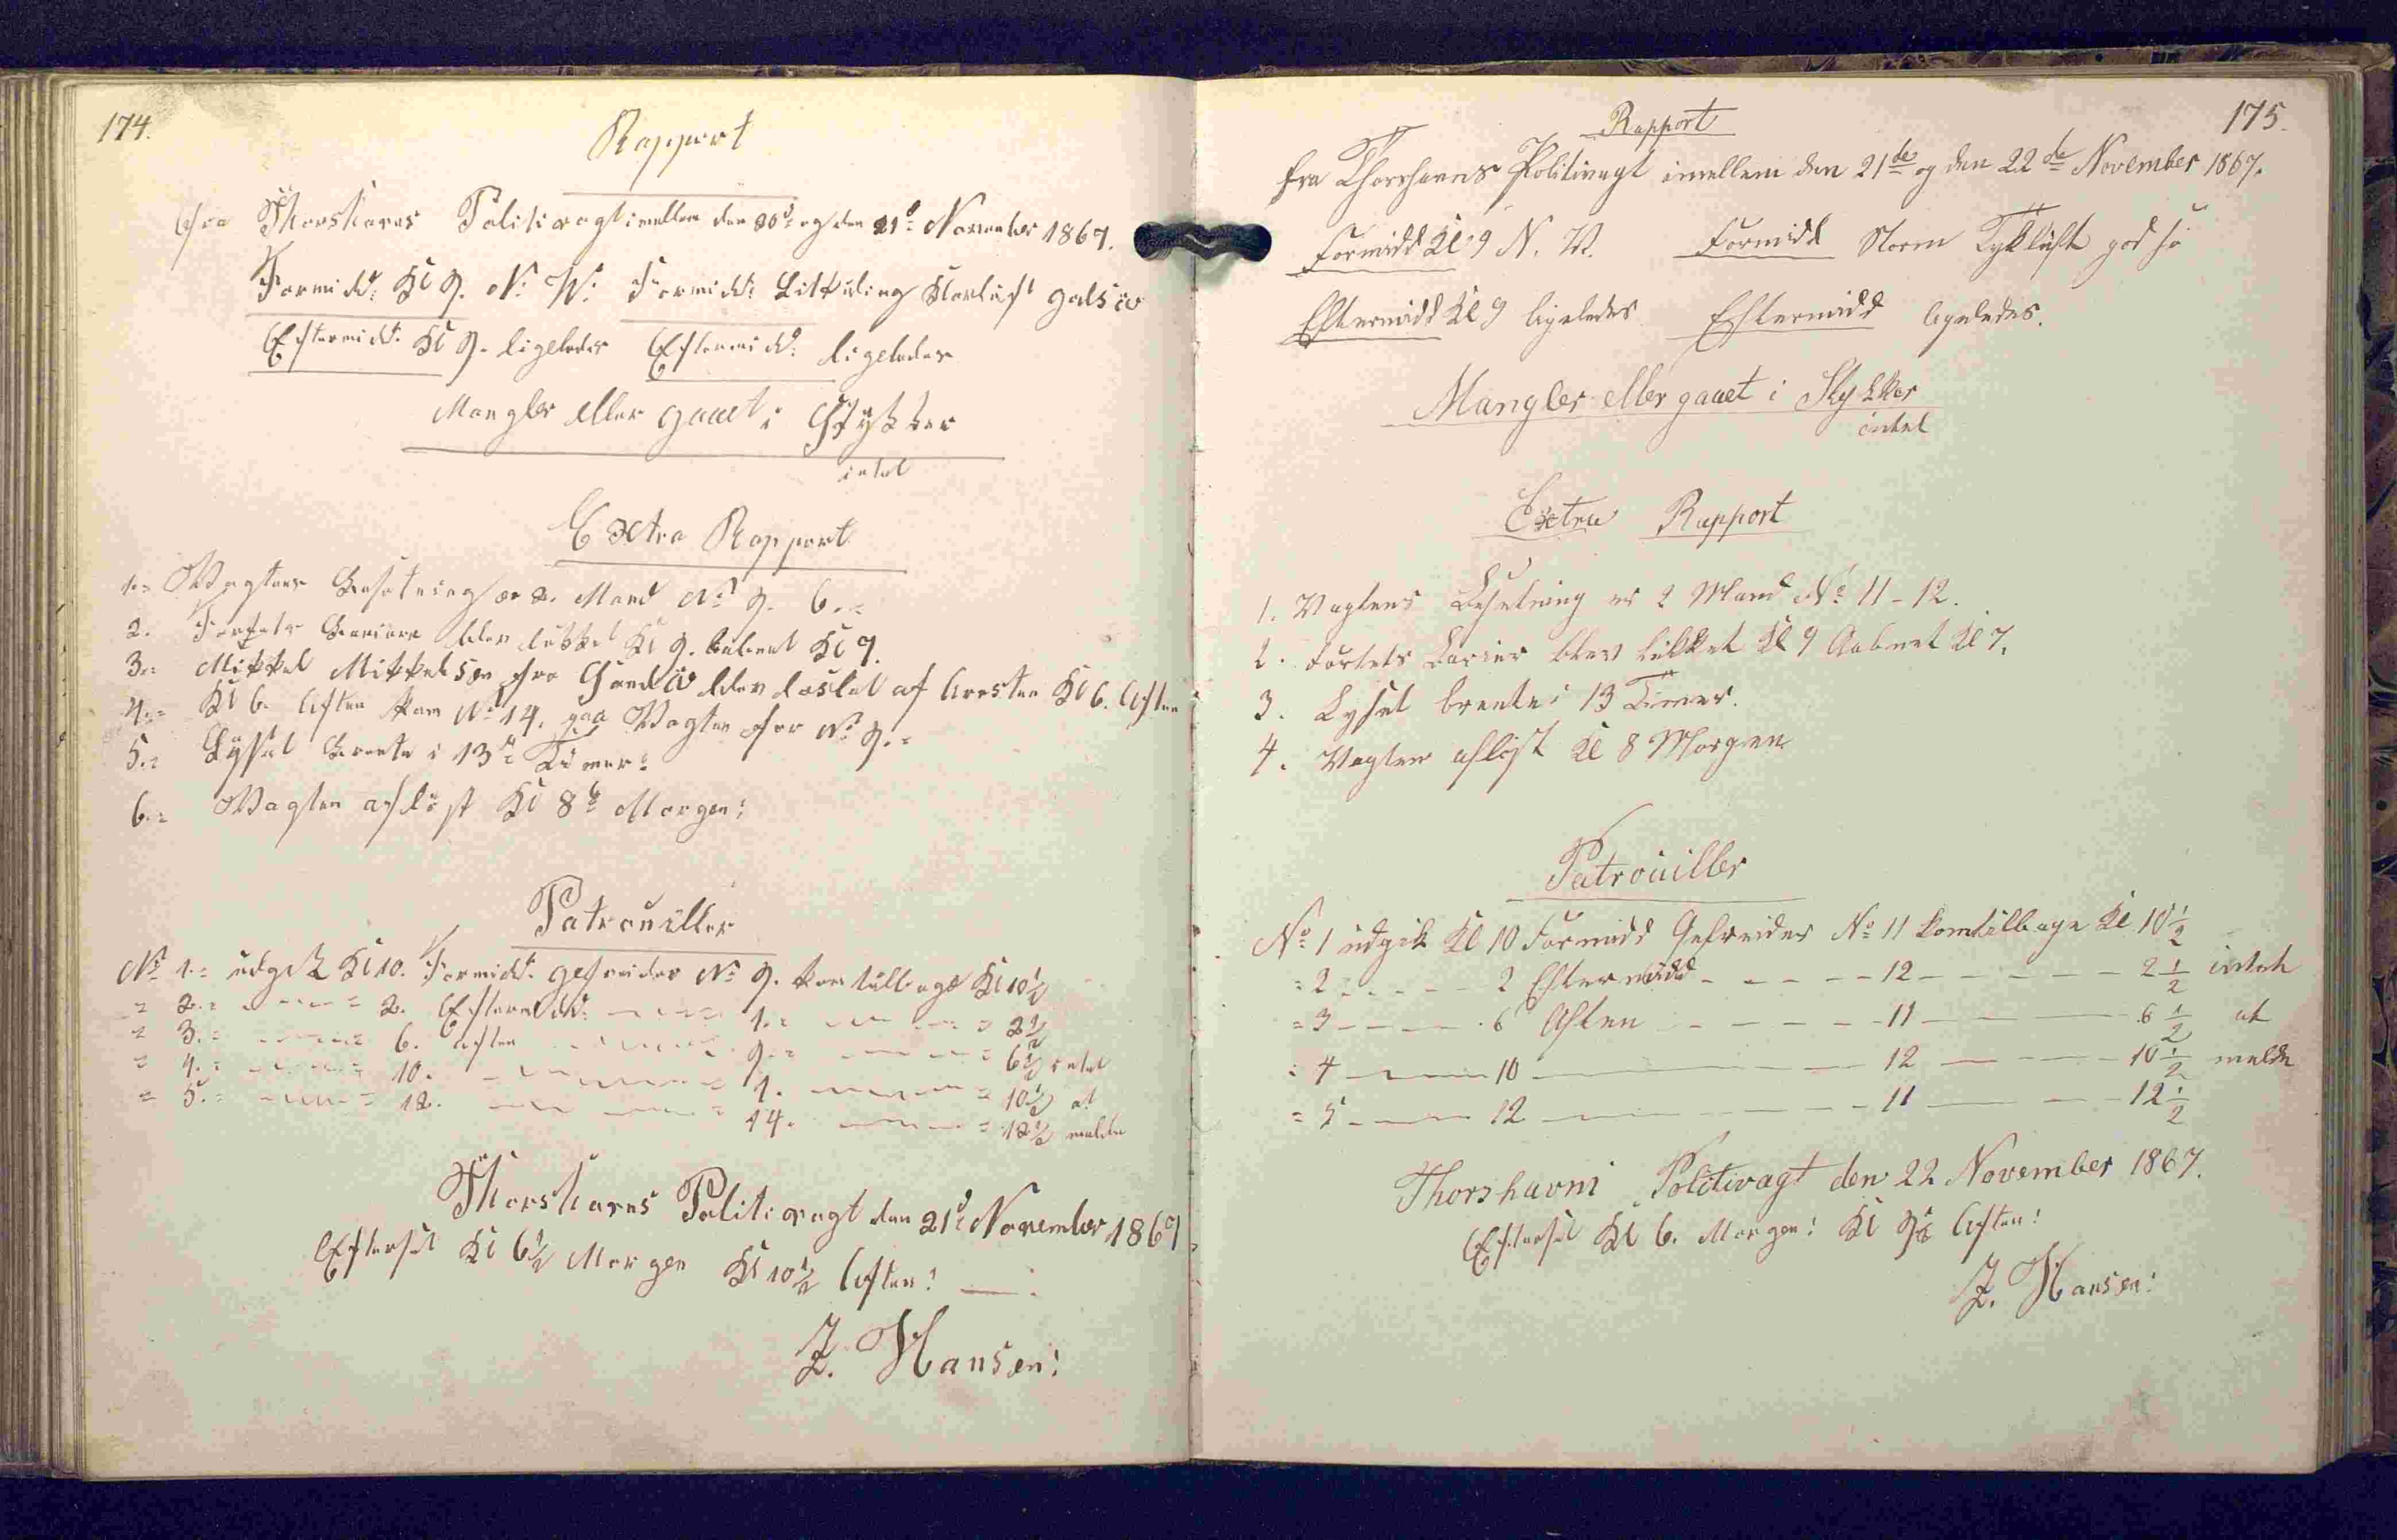 174.
Rapport
fra Thorshavns Politivagt imellem den 20d: og den 21d: November 1867.
Formidd: Kl 9. N: W: Formidd: Litkuling Klarluft godsiø
Eftermidd: Kl 9. ligeledes Eftermidd: ligeledes
Mangler eller gaaet i Stykker
intet
Extra Rapport
1.= Vagtens Besetning er 2. Mand No 9. 6.=
2. Fortets Barriere blev lukket Kl 9. aabnet Kl 7.
3.= Mikkel Mikkelsen fra blev løslat af Aresten Kl 6. Aften
4.= Kl 6. Aften kom No 14. paa Vagten for No 9.=
5.= Lyset brente i 13 Timer:
6.= Vagten afløst Kl 8 Morgen:
Patrouiller
No 1.= udgik Kl 10. Formidd: gefreider No 9. kom tilbage Kl 10½
= 2.= 2. Eftermidd: 1.= 2½
= 3.= 6. aften 9.= 6½ intet
= 4.= 10. 1. 10½ at
= 5.= 12. 14. 12½ melde
Thorshavns Politivagt den 21d: November 1867
Efterset Kl 6½ Morgen Kl 10½ Aften!
Z. Hansen!
175.
Rapport
fra Thorshavns Politivagt imellem den 21de og den 22de November 1867.
Formidd Kl 9 N. W. Formidd Storm Tykluft god sø
Eftermidd Kl 9 ligeledes Eftermidd ligeledes.
Mangler eller gaaet i Stykker
intet
Extra Rapport
1. Vagtens Besetning er 2 Mand No 11 - 12.
2. Fortets Barier blev lukket Kl 9 Aabnet Kl 7.
3. Lyset brente i 13 Timer.
4. Vagten afløst Kl 8 Morgen
Patrouiller
No 1 udgik Kl 10 Formidd Gefreider No 11 kom tilbage Kl 10½
= 2 2 Eftermidd 12 2½ intet
= 3 6 Aften 11 6½ at
= 4 10 12 10½ melde
= 5 12 11 12½
Thorshavns Politivagt den 22 November 1867.
Efterset Kl 6. Morgen! Kl Aften!
Z. Hansen!